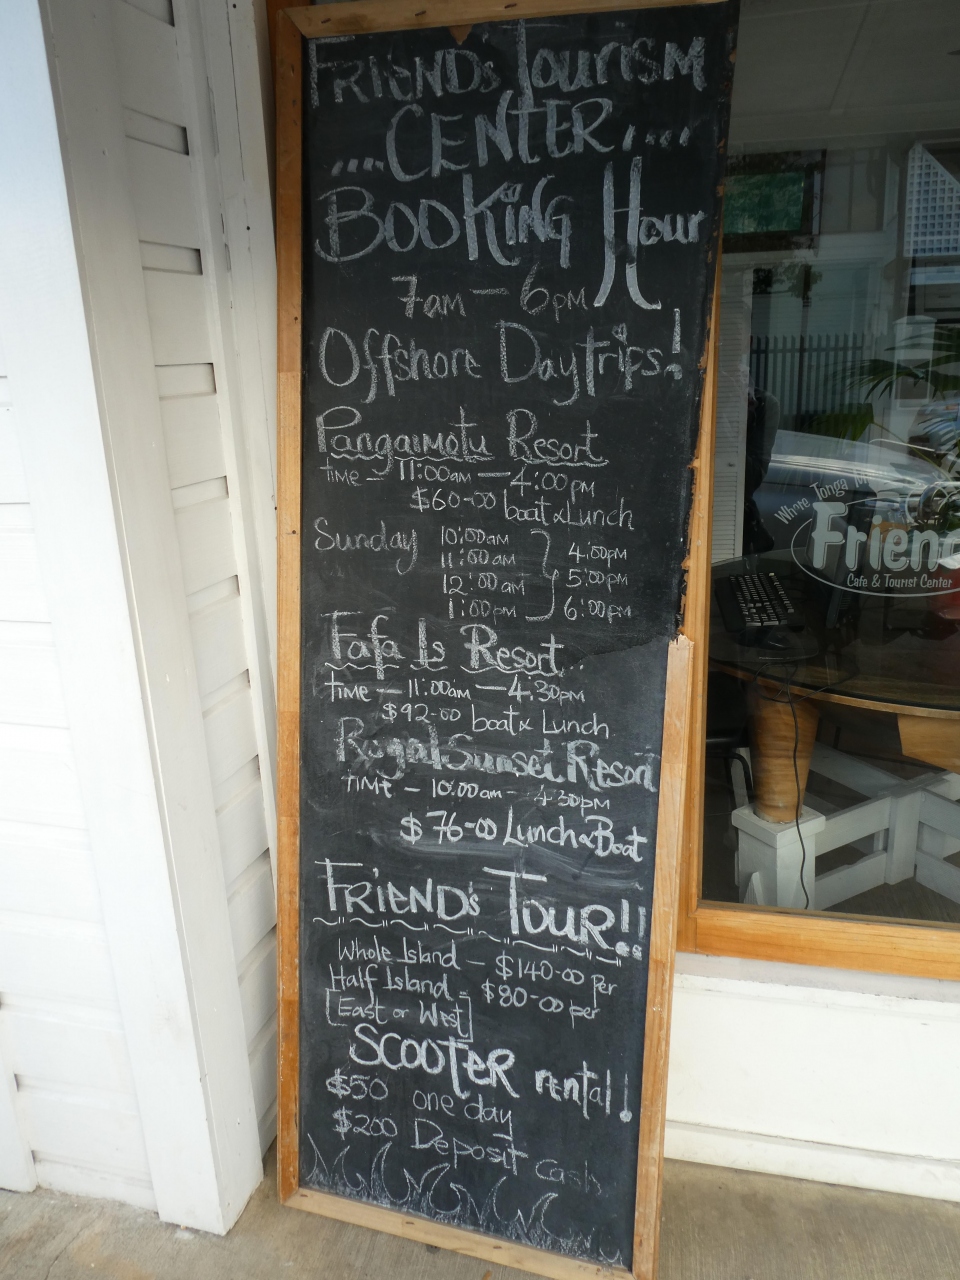 FRIENDs Tourism
CENTER....
....
BOOKiNG Hour
7am — 6pm
Offshore Daytrips!
Pangaimotu Resort
time — 11:00am — 4:00pm
$60-00 boat & Lunch
Sunday 10:00am 4:00pm
11:00am 5:00pm
12:00am 6:00pm
1:00pm
Fafa Is Resort...
time — 11:00am — 4:30pm
$92-00 boat & Lunch
Royal Sunset Resort
time — 10:00am — 4:30pm
$76-00 Lunch & Boat
FRiENDs TOUR!!
Whole Island — $140-00 per
Half Island - $80-00 per
[East or West]
SCOOTER rental!
$50 one day
$200 Deposit Cash
Where Tonga
Frien
Cafe & Tourist Center